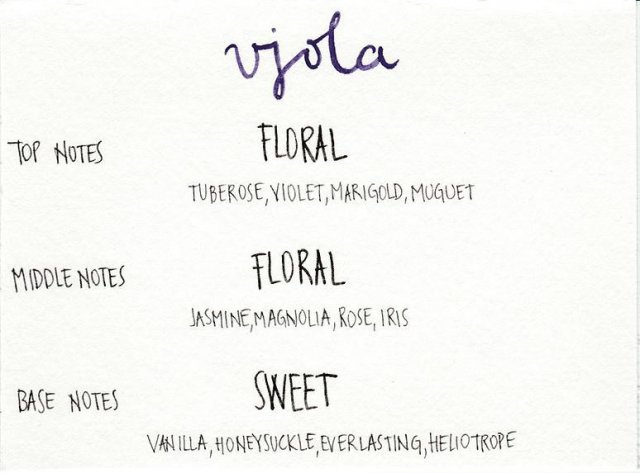 vjola
TOP NOTES FLORAL
TUBEROSE, VIOLET, MARIGOLD, MUGUET
MIDDLE NOTES FLORAL
JASMINE, MAGNOLIA, ROSE, IRIS
BASE NOTES SWEET
VANILLA, HONEYSUCKLE, EVERLASTING, HELIOTROPE